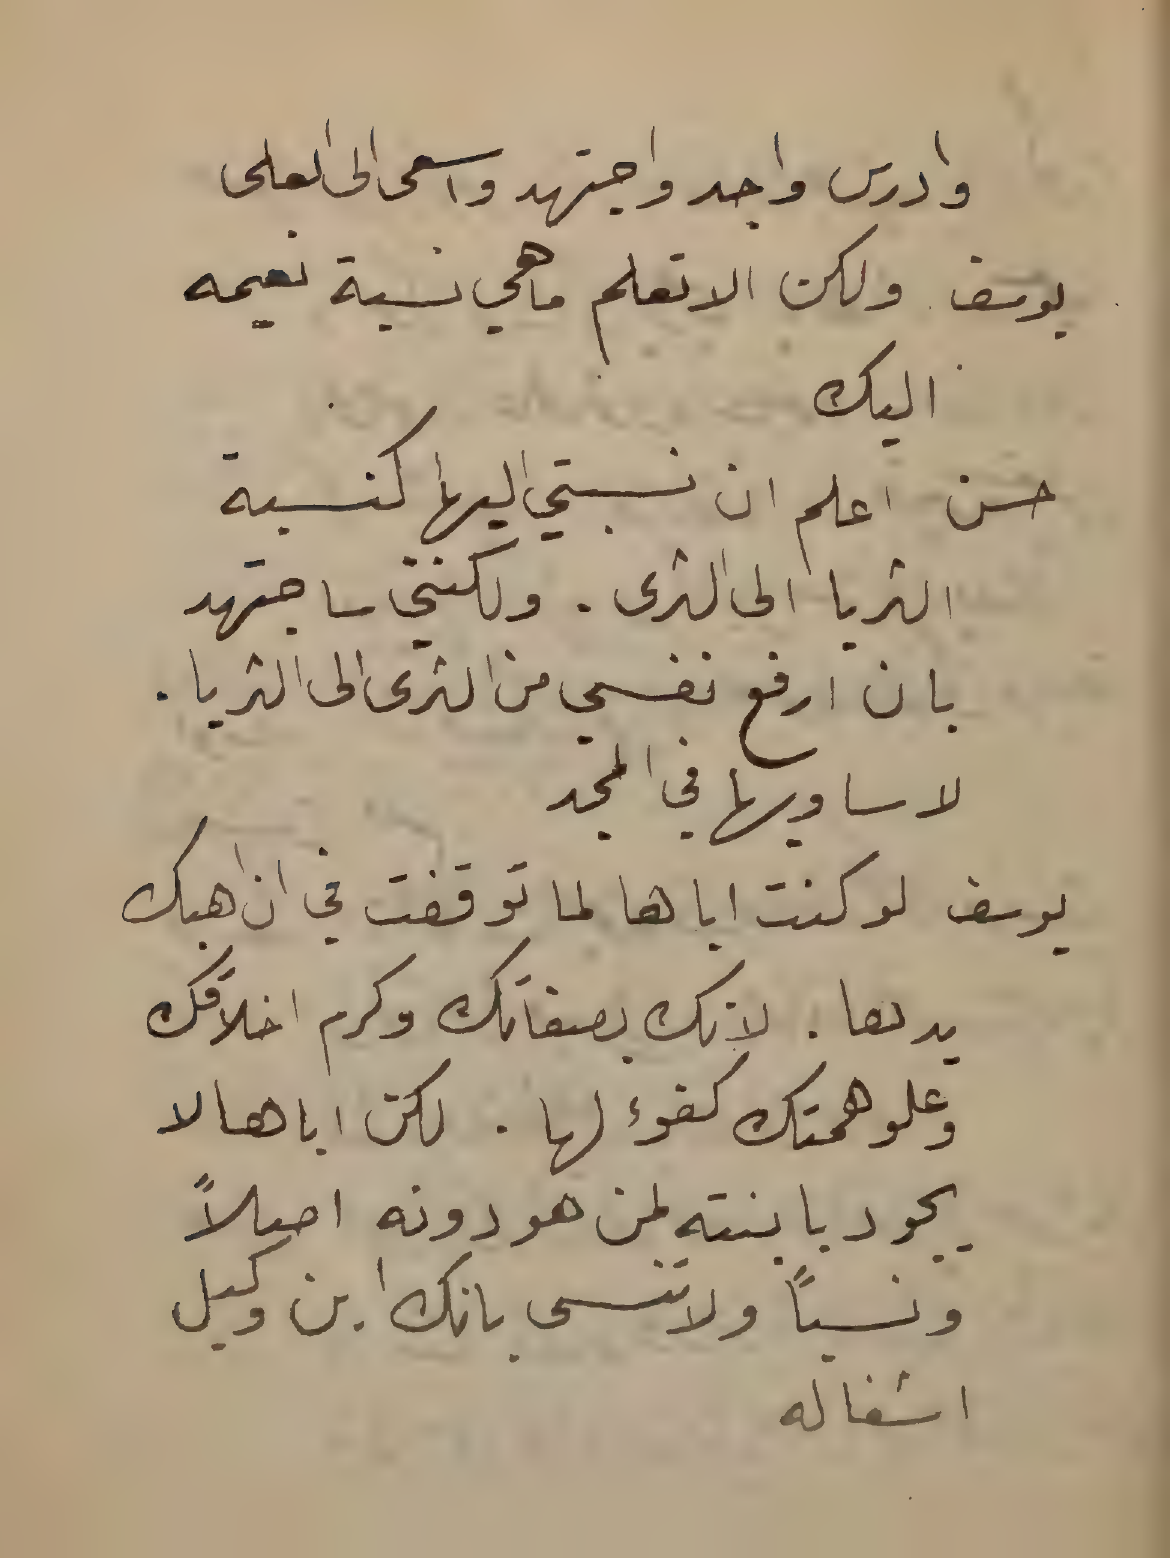 وادرس واجد واجتهد واسعى الى العلى
يوسف ولكن الا تعلم ما هي نسبة نعيمه
اليك
حسن اعلم ان نسبتي اليها كنسبة
الثريا الى الثرى . ولكنني ساجتهد
بان ارفع نفسي من الثرى الى الثريا .
لاساويها في المجد
يوسف لو كنت اباها لما توقفت في ان اهبك
يدها . لانك بصفاتك وكرم اخلاقك
وعلو همتك كفوء لها . لكن اباها لا
يجود بابنته لمن هو دونه اصلاً
ونسباً ولا تنسى بانك ابن وكيل
اشغاله